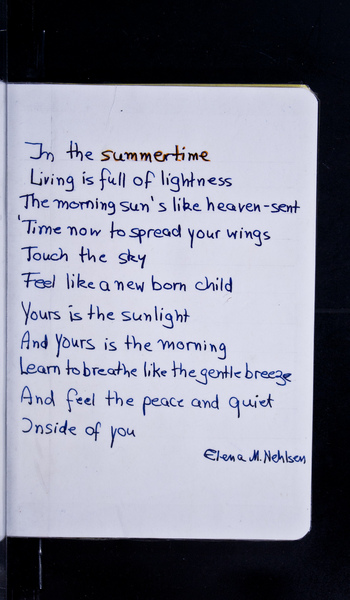 In the summertime
Living is full of lightness
The morning sun's like heaven-sent
'Time now to spread your wings
Touch the sky
Feel like a new born child
Yours is the sunlight
And yours is the morning
Learn to breathe like the gentle breeze
And feel the peace and quiet
Inside of you
Elena M. Nehlsen